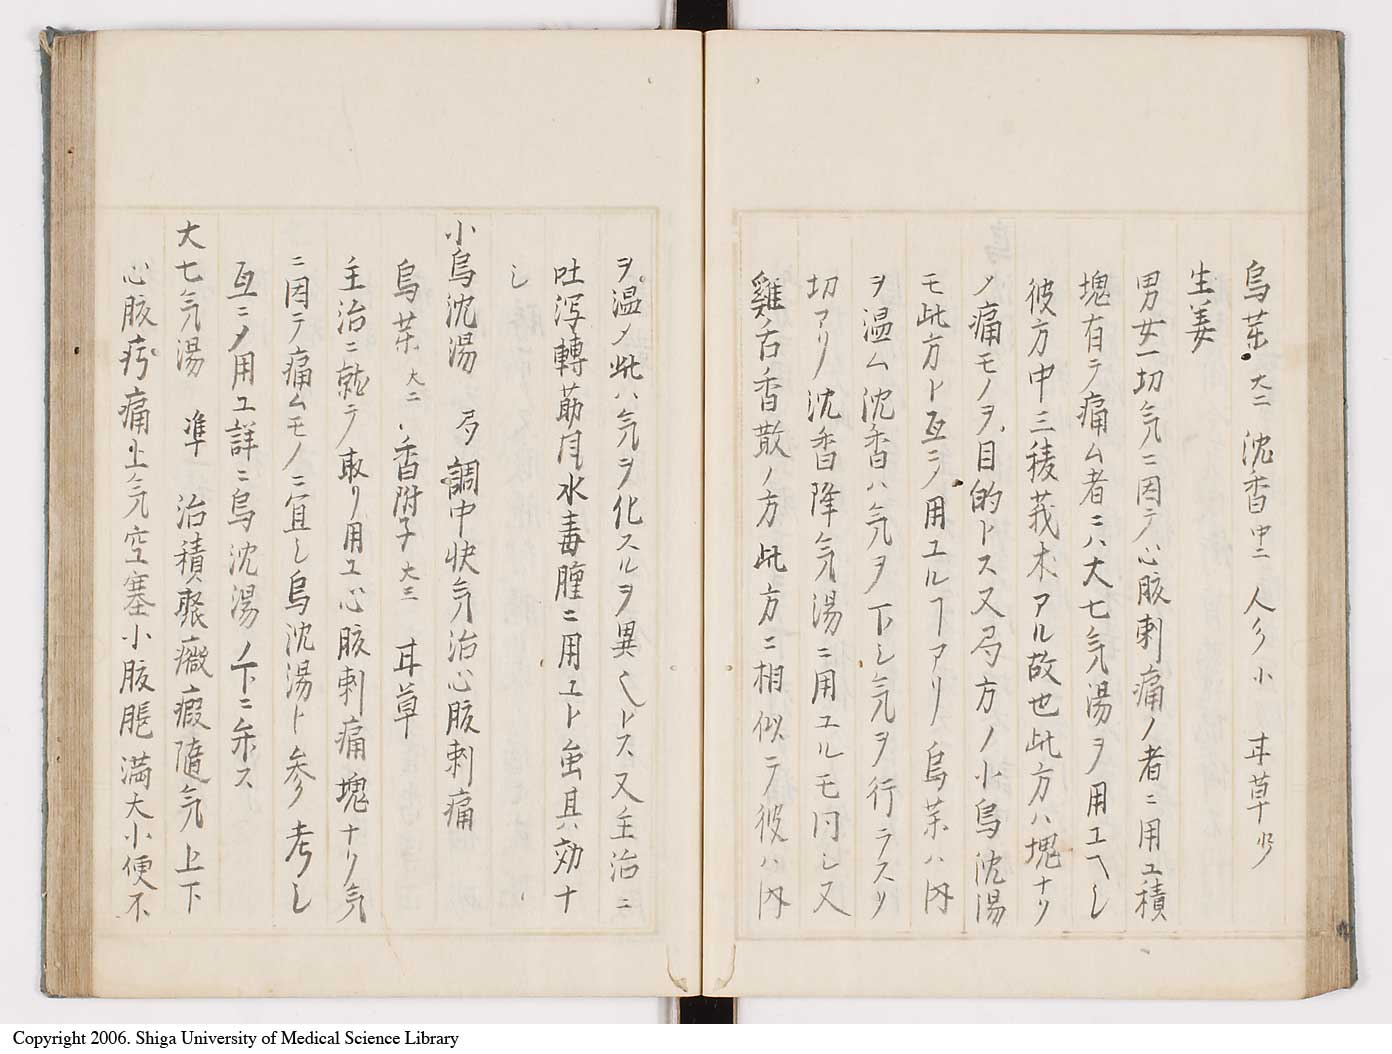 烏茱 大二 沈香 中二 人参 小 甘草 少
生姜
男女一切気ニ因テ心腹刺痛ノ者ニ用ユ積
塊有テ痛ム者ニハ大七気湯ヲ用ユヘシ
彼方中三稜莪朮アル故也此方ハ塊ナリ
ノ痛モノヲ目的トス又局方ノ小烏沈湯
モ此方ト互ニノ用ユルヿアリ烏茱ハ内
ヲ温ム沈香ハ気ヲ下シ気ヲ行ラスノ
切アリ沈香降気湯ニ用ユルモ同シ又
雞舌香散ノ方此方ニ相似テ彼ハ内
ヲ温ノ此ハ気ヲ化スルヲ異〱トス又主治ニ
吐瀉轉筋月水毒腫ニ用ユト虽其ハ効ナ
シ
小烏沈湯 局 調中快気治心腹刺痛
烏茱 大二 香附子 大三 甘草
主治ニ就テ取リ用ユ心腹刺痛塊ナリ気
ニ因テ痛ムモノニ宜シ烏沈湯ト参考シ
互ニノ用ユ詳ニ烏沈湯ノ下ニ弁ス
大七気湯 準 治積聚癥瘕随気上下
心腹㽲痛上気窒塞小腹脹満大小便不